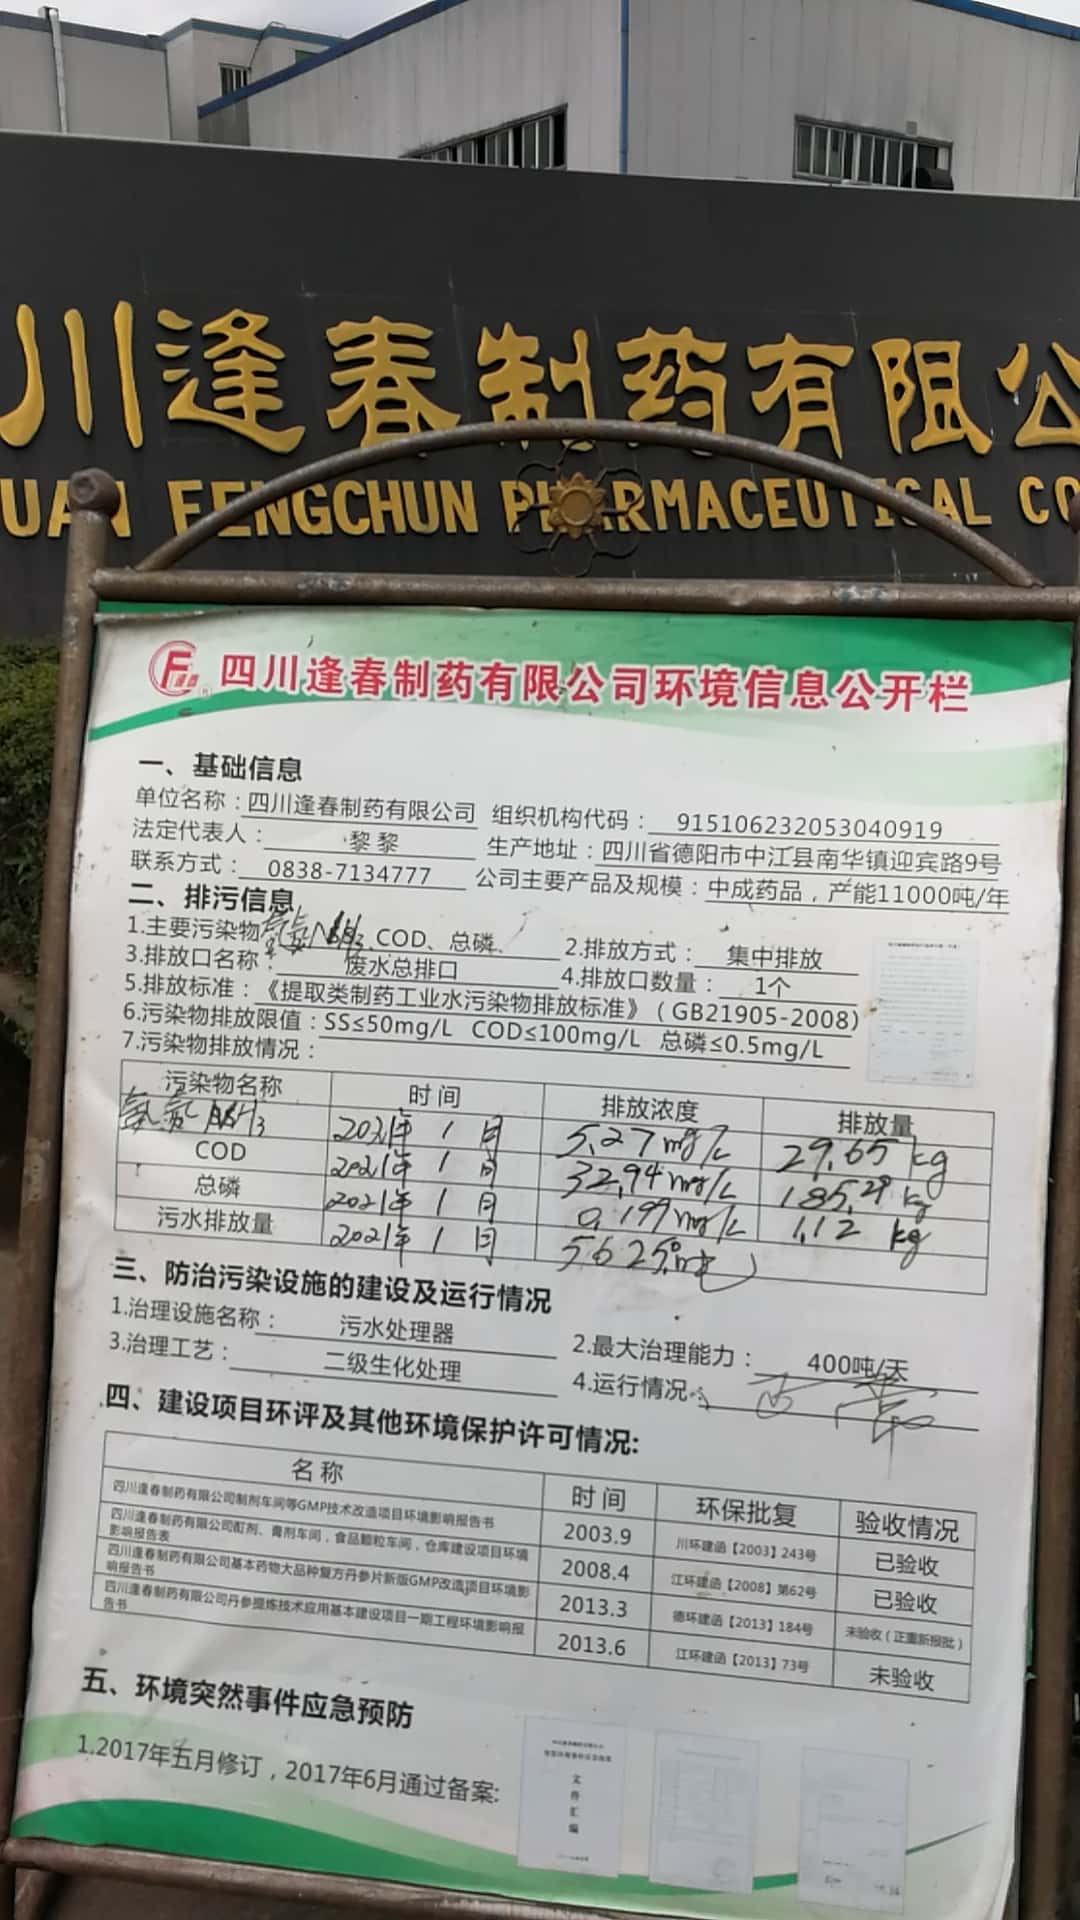 川逢春制药有限公
UAN FENGCHUN PHARMACEUTICAL CO
四川逢春制药有限公司环境信息公开栏
一、基础信息
单位名称：四川逢春制药有限公司 组织机构代码：915106232053040919
法定代表人：黎黎 生产地址：四川省德阳市中江县南华镇迎宾路9号
联系方式：0838-7134777 公司主要产品及规模：中成药品，产能11000吨/年
二、排污信息
1.主要污染物氨氮NH3、COD、总磷、 2.排放方式：集中排放
3.排放口名称：废水总排口 4.排放口数量：1个
5.排放标准：《提取类制药工业水污染物排放标准》（GB21905-2008）
6.污染物排放限值：SS≤50mg/L COD≤100mg/L 总磷≤0.5mg/L
7.污染物排放情况：
污染物名称 时间 排放浓度 排放量
氨氮 NH3 2021年1月 5.27mg/L 29.65kg
COD 2021年1月 32.94mg/L 185.29kg
总磷 2021年1月 0.199mg/L 1.12kg
污水排放量 2021年1月 5625吨
三、防治污染设施的建设及运行情况
1.治理设施名称：污水处理器 2.最大治理能力：400吨/天
3.治理工艺：二级生化处理 4.运行情况：正常
四、建设项目环评及其他环境保护许可情况:
名称 时间 环保批复 验收情况
四川逢春制药有限公司制剂车间等GMP技术改造项目环境影响报告书 2003.9 川环建函【2003】243号 已验收
四川逢春制药有限公司酊剂、膏剂车间，食品颗粒车间，仓库建设项目环境
影响报告表 2008.4 江环建函【2008】第62号 已验收
四川逢春制药有限公司基本药物大品种复方丹参片新版GMP改造项目环境影
响报告书 2013.3 德环建函【2013】184号 未验收（正重新报批）
四川逢春制药有限公司丹参提炼技术应用基本建设项目一期工程环境影响报
告书 2013.6 江环建函【2013】73号 未验收
五、环境突然事件应急预防
1.2017年五月修订，2017年6月通过备案:
文件汇编